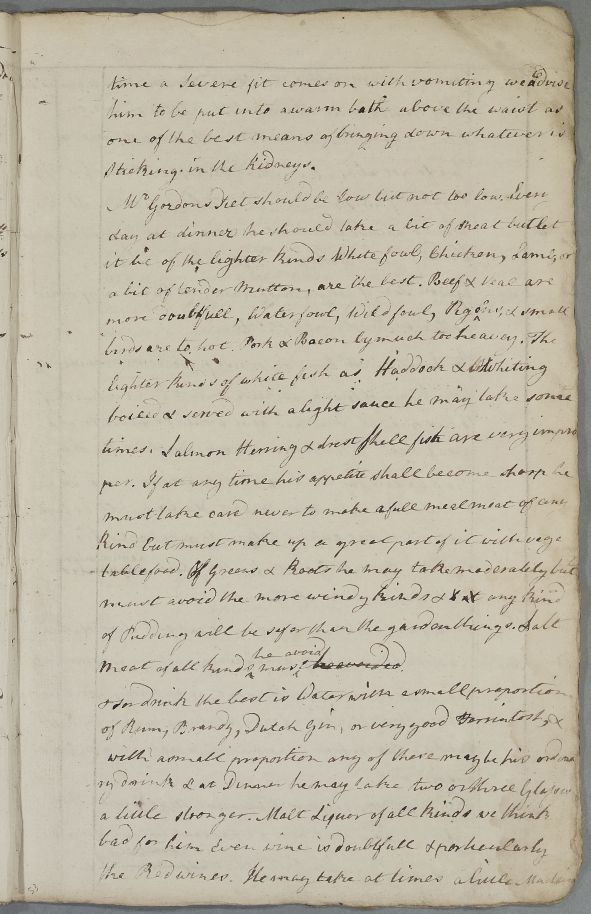 time a severe fit comes on with vomiting we advise
him to be put into a warm bath above the waist as
one of the best means of bringing down whatever is
sticking in the Kidneys.
Mr Gordons Diet should be low but not too low. Every
day at dinner he should take a bit of meat but let
it be of the lighter kinds White fowl, Chicken, Lamb, or
a bit of tender Mutton, are the best. Beef & Veal are
more doubtfull, Waterfowl, Wild fowl, Pigeons, & small
birds are to hot. Pork & Bacon by much too heavy. The
lighter kinds of white fish as Haddock & Whiting
boiled & served with a light sauce he may take some
times. Salmon Herring & drest shell fish are very impro
per. If at any time his appetite shall become sharp he
must take care never to make a full meal meat of any
kind but must make up a great part of it with vege
table food. Of Greens & Roots he may take moderately but
must avoid the more windy kinds & any kind
of Pudding will be safer than the garden things. Salt
meat of all kinds must he avoid
& for drink the best is Water with a small proportion
of Rum, Brandy, Dutch Gin, or very good &
with a small proportion any of these may be his ordina
ry drink & at Dinner he may take two or three Glasses
a little stronger. Malt Liquor of all kinds we think
bad for him Even wine is doubtfull & particularly
the Red wines. He may take at times a little